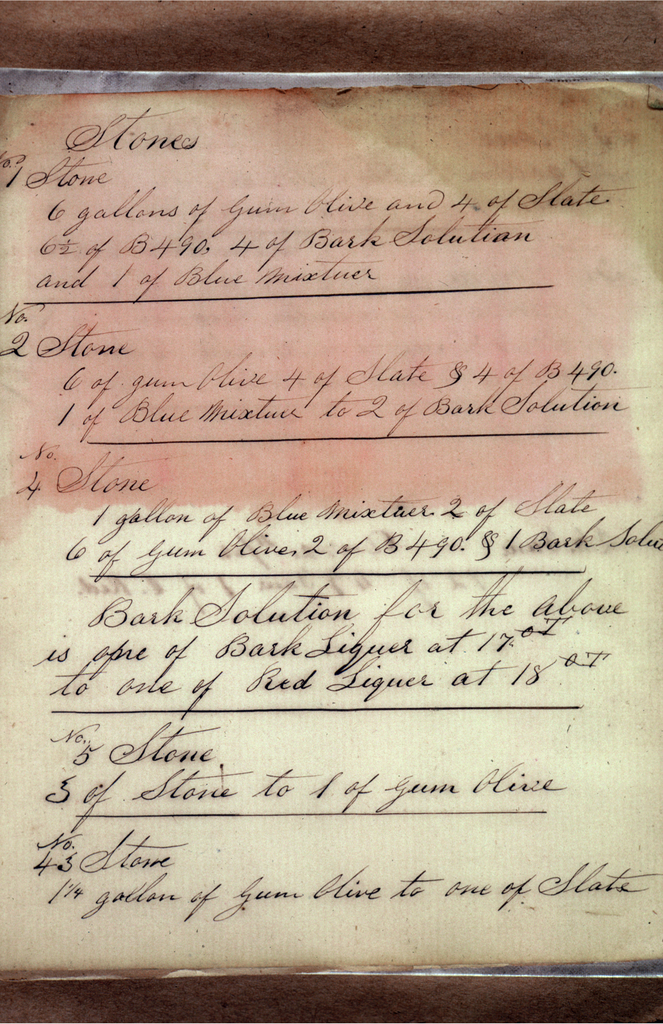 Stones
No. 1 Stone
6 gallons of Gum Olive and 4 of Slate.
6½ of B 490. 4 of Bark Solution
and 1 of Blue Mixtuer
No. 2 Stone
6 of gum Olive 4 of Slate & 4 of B 490.
1 of Blue Mixture to 2 of Bark Solution
No. 4 Stone
1 gallon of Blue Mixtuer. 2 of Slate
6 of Gum Olive. 2 of B 490. & 1 Bark Solu
Bark Solution for the above
is one of Bark Liquer at 17
to one of Red Liquer at 18
No. 5 Stone.
3 of Stone to 1 of Gum Olive
No. 43 Stone
1¼ gallon of Gum Olive to one of Slate